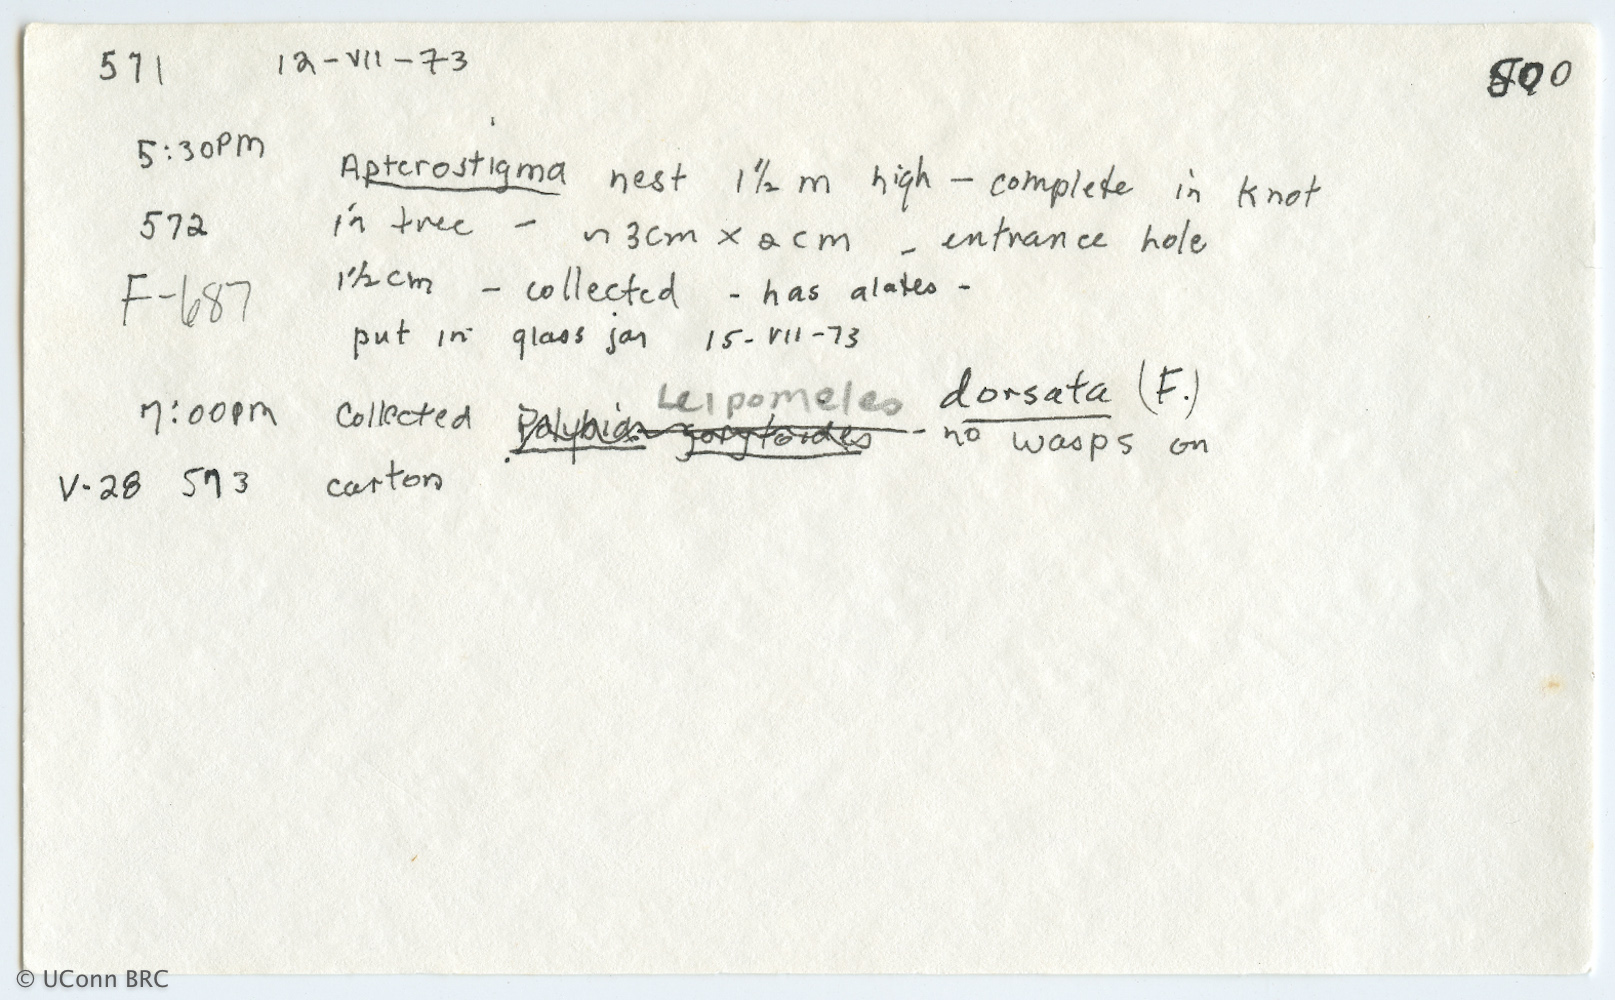 571 12-VII-73
5:30PM Apterostigma nest 1½ m high - complete in knot
572 in tree - ~ 3cm x 2cm - entrance hole
F-687 1½cm - collected - has alates -
put in glass jar 15-VII-73
Leipomeles dorsata (F.)
7:00pm collected Polybia gorytoides - no wasps on
V-28 573 carton
© UConn BRC